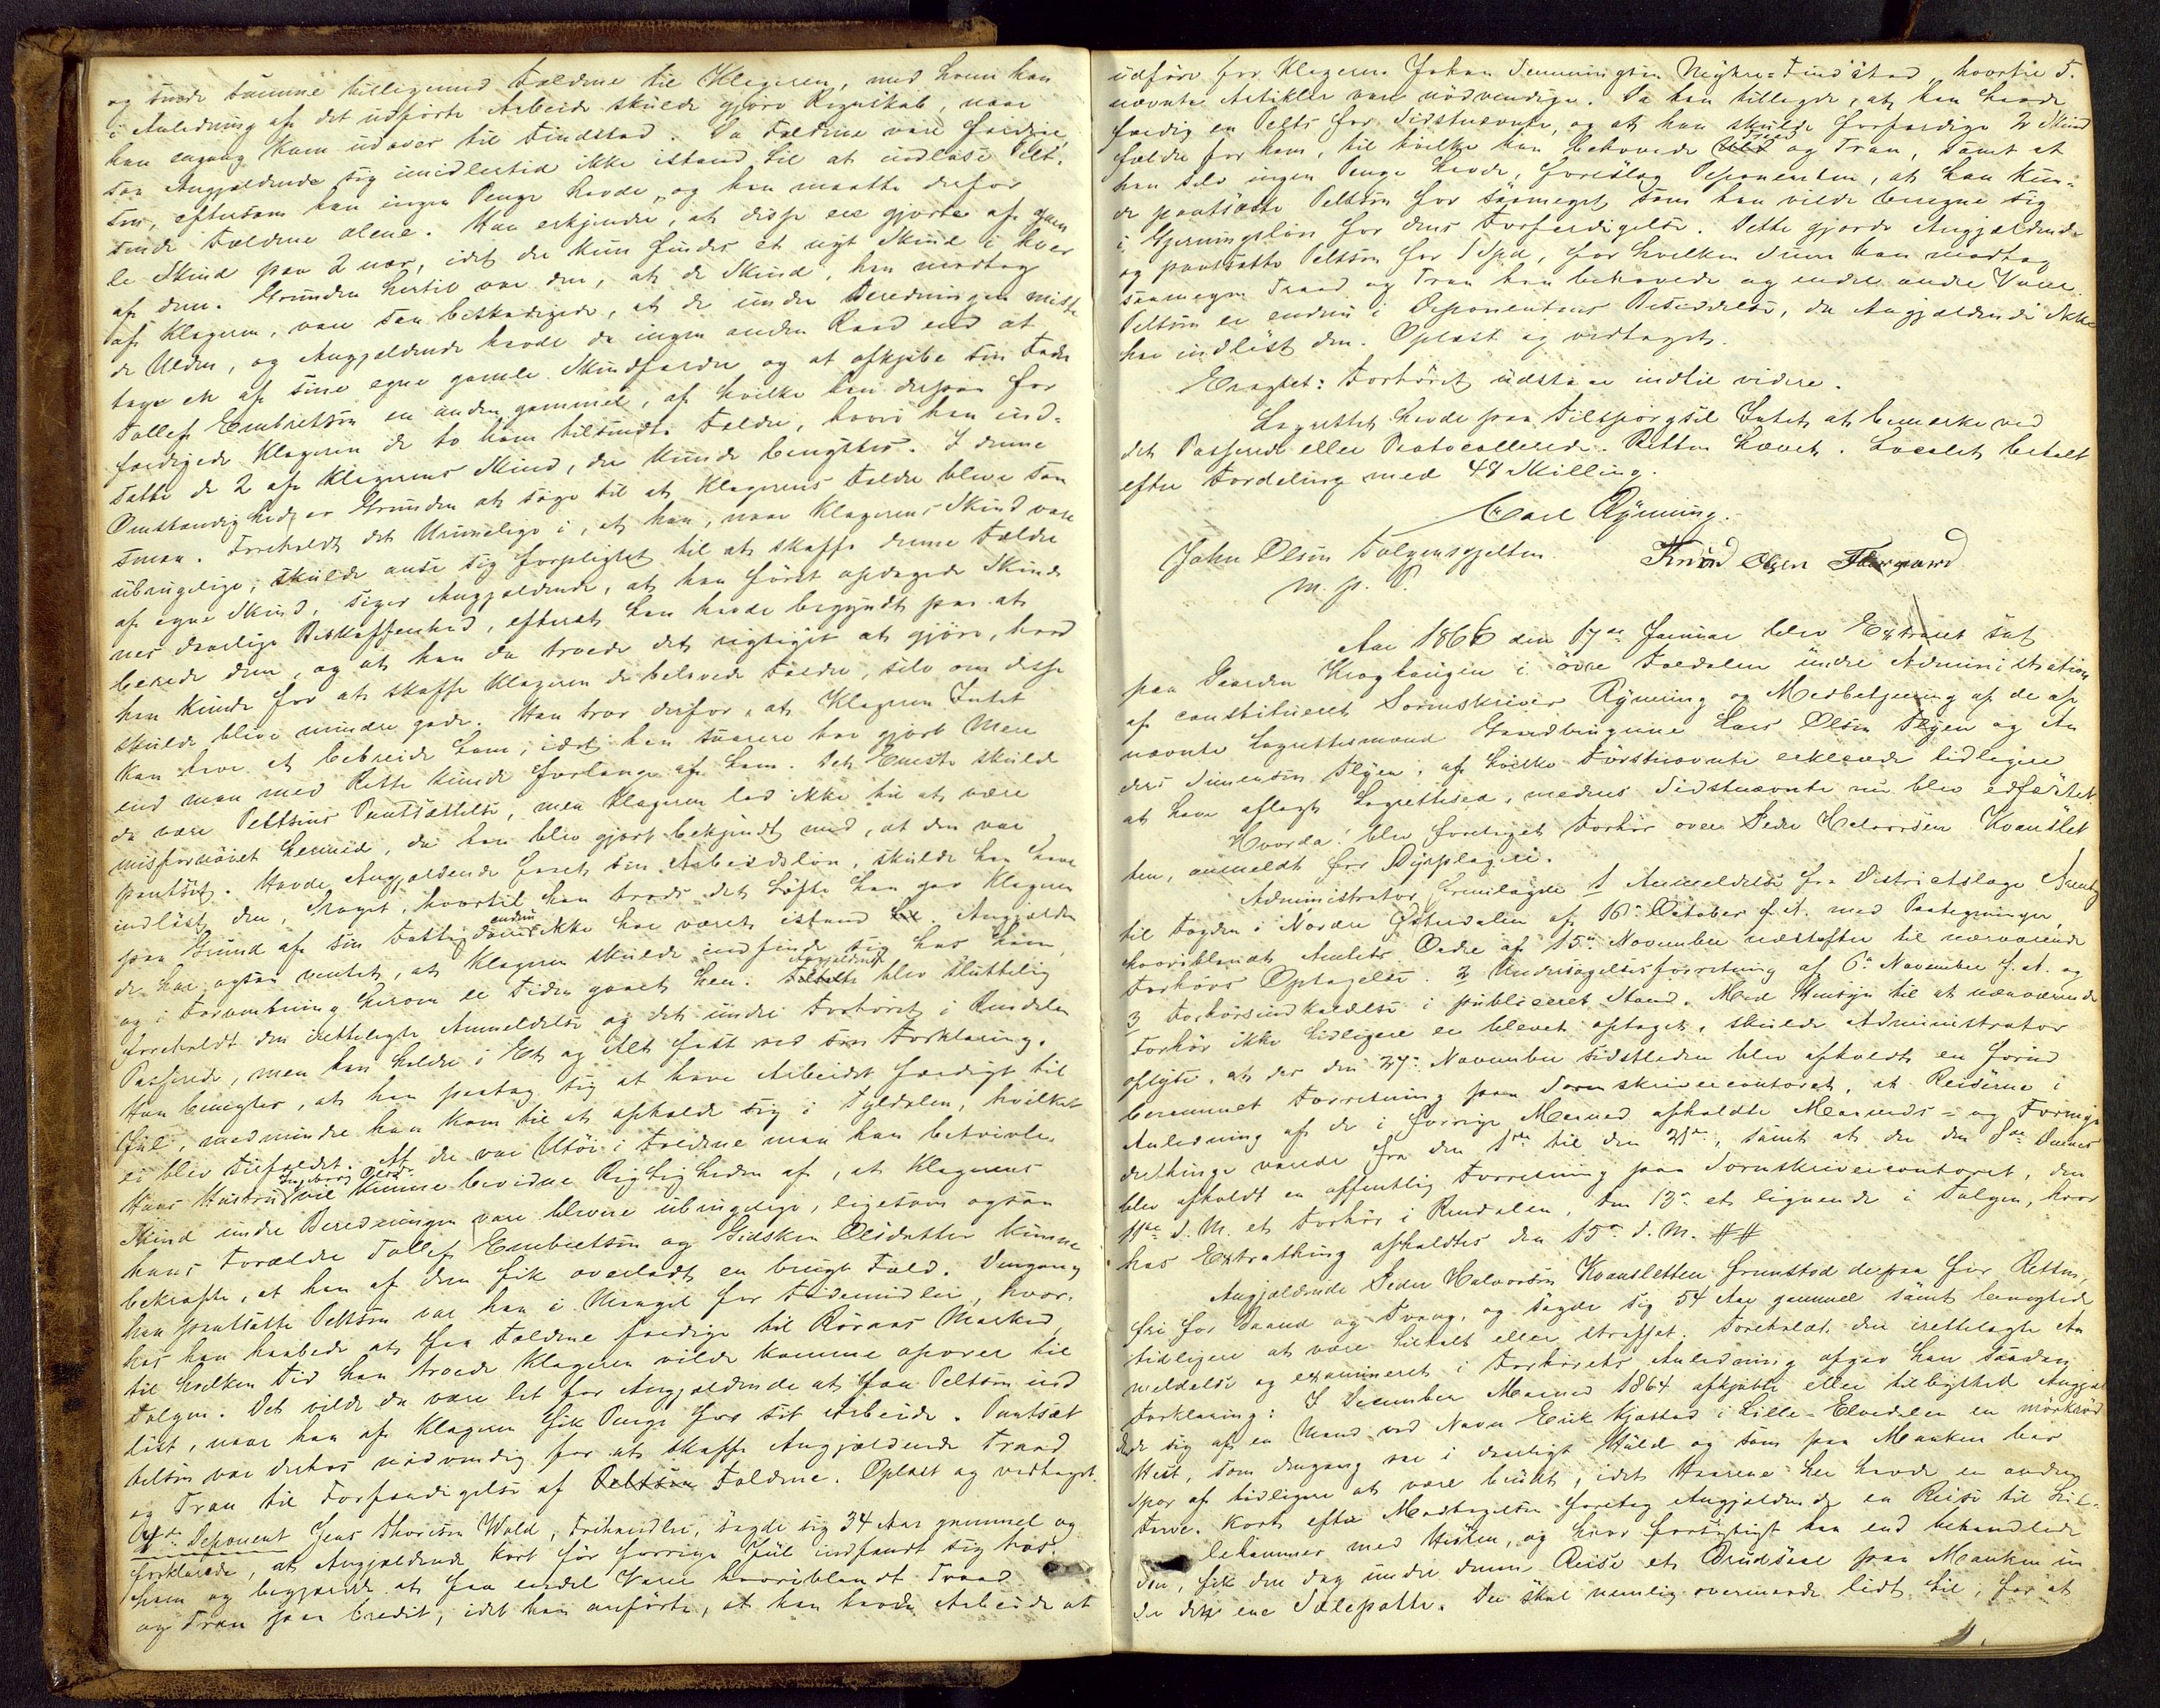 og sende samme tilligemed Fældene til Klageren, med hvem han
i Anledning af det udførte Arbeide skulde gjøre Regnskab, naar
han engang kom udover til Findstad. Da Fældene vare færdige,
saa Angjældende sig imidlertid ikke istand til at indløse Pelt-
sen, eftersom han ingen Penge havde, og han maatte derfor
sende Fældene alene. Han erkjender, at disse ere gjorte af gam
le Skind paa 2 nær, idet der kun findes et nyt Skind i hver
af dem. Grunden hertil var den, at de Skind, han modtog
af Klageren, vare saa beskadigede, at de under Beredningen miste
de Ulden, og Angjældende havde da ingen anden Raad end at
tage en af sine egne gamle Skindfælder og at afkjøbe sin Fader
Tollef Embretsen en anden gammel, af hvilke han derpaa for
færdigede Klageren de to ham tilsendte Fælder, hvori han ind-
satte de 2 af Klagerens Skind, der kunde benyttes. I denne
Omstændighed er Grunden at søge til at Klagerens Fælder bleve saa
smaa. Foreholdt det Urimelige i, at han, naar Klagerens Skind vare
ubrugelige, skulde anse sig forpligtet til at skaffe denne Fælder
af egne Skind, siger Angjældende, at han først opdagede Skinde
nes daarlige Beskaffenhed, efterat han havde begyndt paa at
berede dem, og at han da troede det rigtigst at gjøre, hvad
han kunde for at skaffe Klageren de belovede Fælder, selv om disse
skulde blive mindre gode. Han tror derfor, at Klageren Intet
kan have at bebreide ham, idet han snarere har gjort Mere
end man med Rette kunde forlange af ham. Det Eneste skulde
da være Peltsens Pantsættelse, men Klageren lod ikke til at være
misfornøiet hermed, da han blev gjort bekjendt med, at den var
pantsat. Havde Angjældende faaet sin Arbeidsløn, skulde han have
indløst den, Noget, hvortil han trods det Løfte han gav Klageren
paa Grund af sin Fattigdom endnu ikke har været istand. Angjælden
de har ogsaa ventet, at Klageren skulde indfinde sig hos ham,
og i Forventning herom er Tiden gaaet hen. Angjældende blev sluttelig
foreholdt den irettelagte Anmeldelse og det under Forhøret i Rendalen
Passerede, men han holder i Et og Alt fast ved sin Forklaring.
Han benegter, at han paatog sig at have Arbeidet færdigt til
Jul, medmindre han kom til at opholde sig i Tyldalen, hvilket
ei blev Tilfældet. At der var Utøi i Fældene maa han betvivle.
Hans Hustru Ingeborg Olsd. vil kunne bevidne Rigtigheden af, at Klagerens
Skind under Beredningen vare blevne ubrugelige, ligesom ogsaa
hans Forældre Tollef Embretsen og Gidsken Olsdatter kunne
bekræfte, at han af dem fik overladt en brugt Fæld. Dengang
han pantsatte Peltsen var han i Mangel for Fødemidler, hvor-
hos han haabede at faa Fældene færdige til Røraas Marked,
til hvilken Tid han troede Klageren vilde komme opover til
Tolgen. Det vilde da være let for Angjældende at faa Peltsen ind
løst, naar han af Klageren fik Penge for sit Arbeide. Pantsæt
telsen var derhos nødvendig for at skaffe Angjældende Traad
og Tran til Forfærdigelse af Fældene. Oplæst og vedtaget.
Deponent Jens Thoresen Wold, Frihandler, sagde sig 34 Aar gammel og
forklarede, at Angjældende kort før forrige Jul indfandt sig hos
ham og begjærede at faa endel Varer hvoriblandt Traad
og Tran paa Credit, idet han anførte, at han havde Arbeide at
udføre for Klageren Johan Simmingsen Myhre-Findstad, hvortil d.
nævnte Artikler vare nødvendige. Da han tillagde, at han havde
færdig en Pelts for Sidstnævnte, og at han skulde forfærdige 2 Skind
fælder for ham, til hvilke han behøvede Traad og Tran, samt at
han selv ingen Penge havde, foreslog Deponenten, at han kun-
de pantsætte Peltsen for saameget, som han vilde beregne sig
i Gjerningsløn for dens Forfærdigelse. Dette gjorde Angjældende
og pantsatte Peltsen for 1 Spd, for hvilken Sum han modtog
saamegen Traad og Tran han behøvede og endel andre Varer.
Peltsen er endnu i Deponentens Besiddelse, da Angjældende ikke
har indløst den. Oplæst og vedtaget.
Eragtet: Forhøret udstaar indtil videre.
Lagrettet havde paa Tilspørgsel Intet at bemærke ved
det Passerede eller Protocollerede. Retten hævet. Localet betalt
efter Fordeling med 48 Skilling.
Carl Rynning.
John Olsen Tolgensgjelten Knud Olsen
m. p. P.
Aar 1866 den 17de Januar blev Extraret sat
paa Gaarden Kroghaugen i øvre Foldalen under Administration
af constitueret Sorenskriver Rynning og Medbetjening af de op
nævnte Lagrettesmænd Gaardbrugerne Lars Olsen Flyen og An
ders Simensen Flyen, af hvilke Førstnævnte erklærede tidligere
at have aflagt Lagrettesed, medens Sidstnævnte nu blev edfæstet.
Hvorda: blev foretaget Forhør over Peder Halvorsen Kvanslet
ten, anmeldt for Dyrplageri.
Administrator fremlagde 1 Anmeldelse fra Districtslæge
til Fogden i Nordre Østerdalen af 16de October f. A. med Paategninger,
hvoriblandt Amtets Ordre af 15de November næstefter til nærværende
Forhørs Optagelse. 2 Undersøgelsesforretning af 6de November f. A. og
3 Forhørsindkaldelse i publiceret Stand. Med Hensyn til at nærværende
Forhør ikke tidligere er blevet optaget, skulde Administrator
oplyse, at der den 27de November sidstleden blev afholdt en forud
berammet Forretning paa Sorenskrivercontoret, at Reiserne i
Anledning af de i forrige Maaned afholdte Maaneds- og Formyn
derthinge varede fra den 1ste til den 21de, samt at der den 8de dennes
blev afholdt en offentlig Forretning paa Sorenskrivercontoret, den
11te d. M. et Forhør i Rendalen, den 13de et lignende i Tolgen, hvor
hos Extrathing afholdtes den 15de d. M. ##
Angjældende Peder Halvorsen Kvansletten fremstod derpaa for Retten,
fri for Baand og Tvang, og sagde sig 54 Aar gammel samt benegtede
tidligere at være tiltalt eller straffet. Foreholdt den irettelagte An
meldelse og examineret i Forhørets Anledning afgav han saadan
Forklaring: I December Maaned 1864 afkjøbte eller tilbyttede Angjæl
dende sig af en Mand ved Navn Erik Kjøstad i Lille-Elvedalen en mørkrød
Hest, som dengang var i daarligt Huld og som paa Manken bar
Spor af tidligere at være brudt, idet Haarene her havde en anden
Farve. Kort efter Modtagelsen foretog Angjældende en Reise til Lil-
lehammer med Hesten, og hvor forsigtigt han end behandlede
den, fik den dog under denne Reise et Brudsaar paa Manken un
der den ene Sælepotte. Der skal nemlig overmaade lidt til, for at